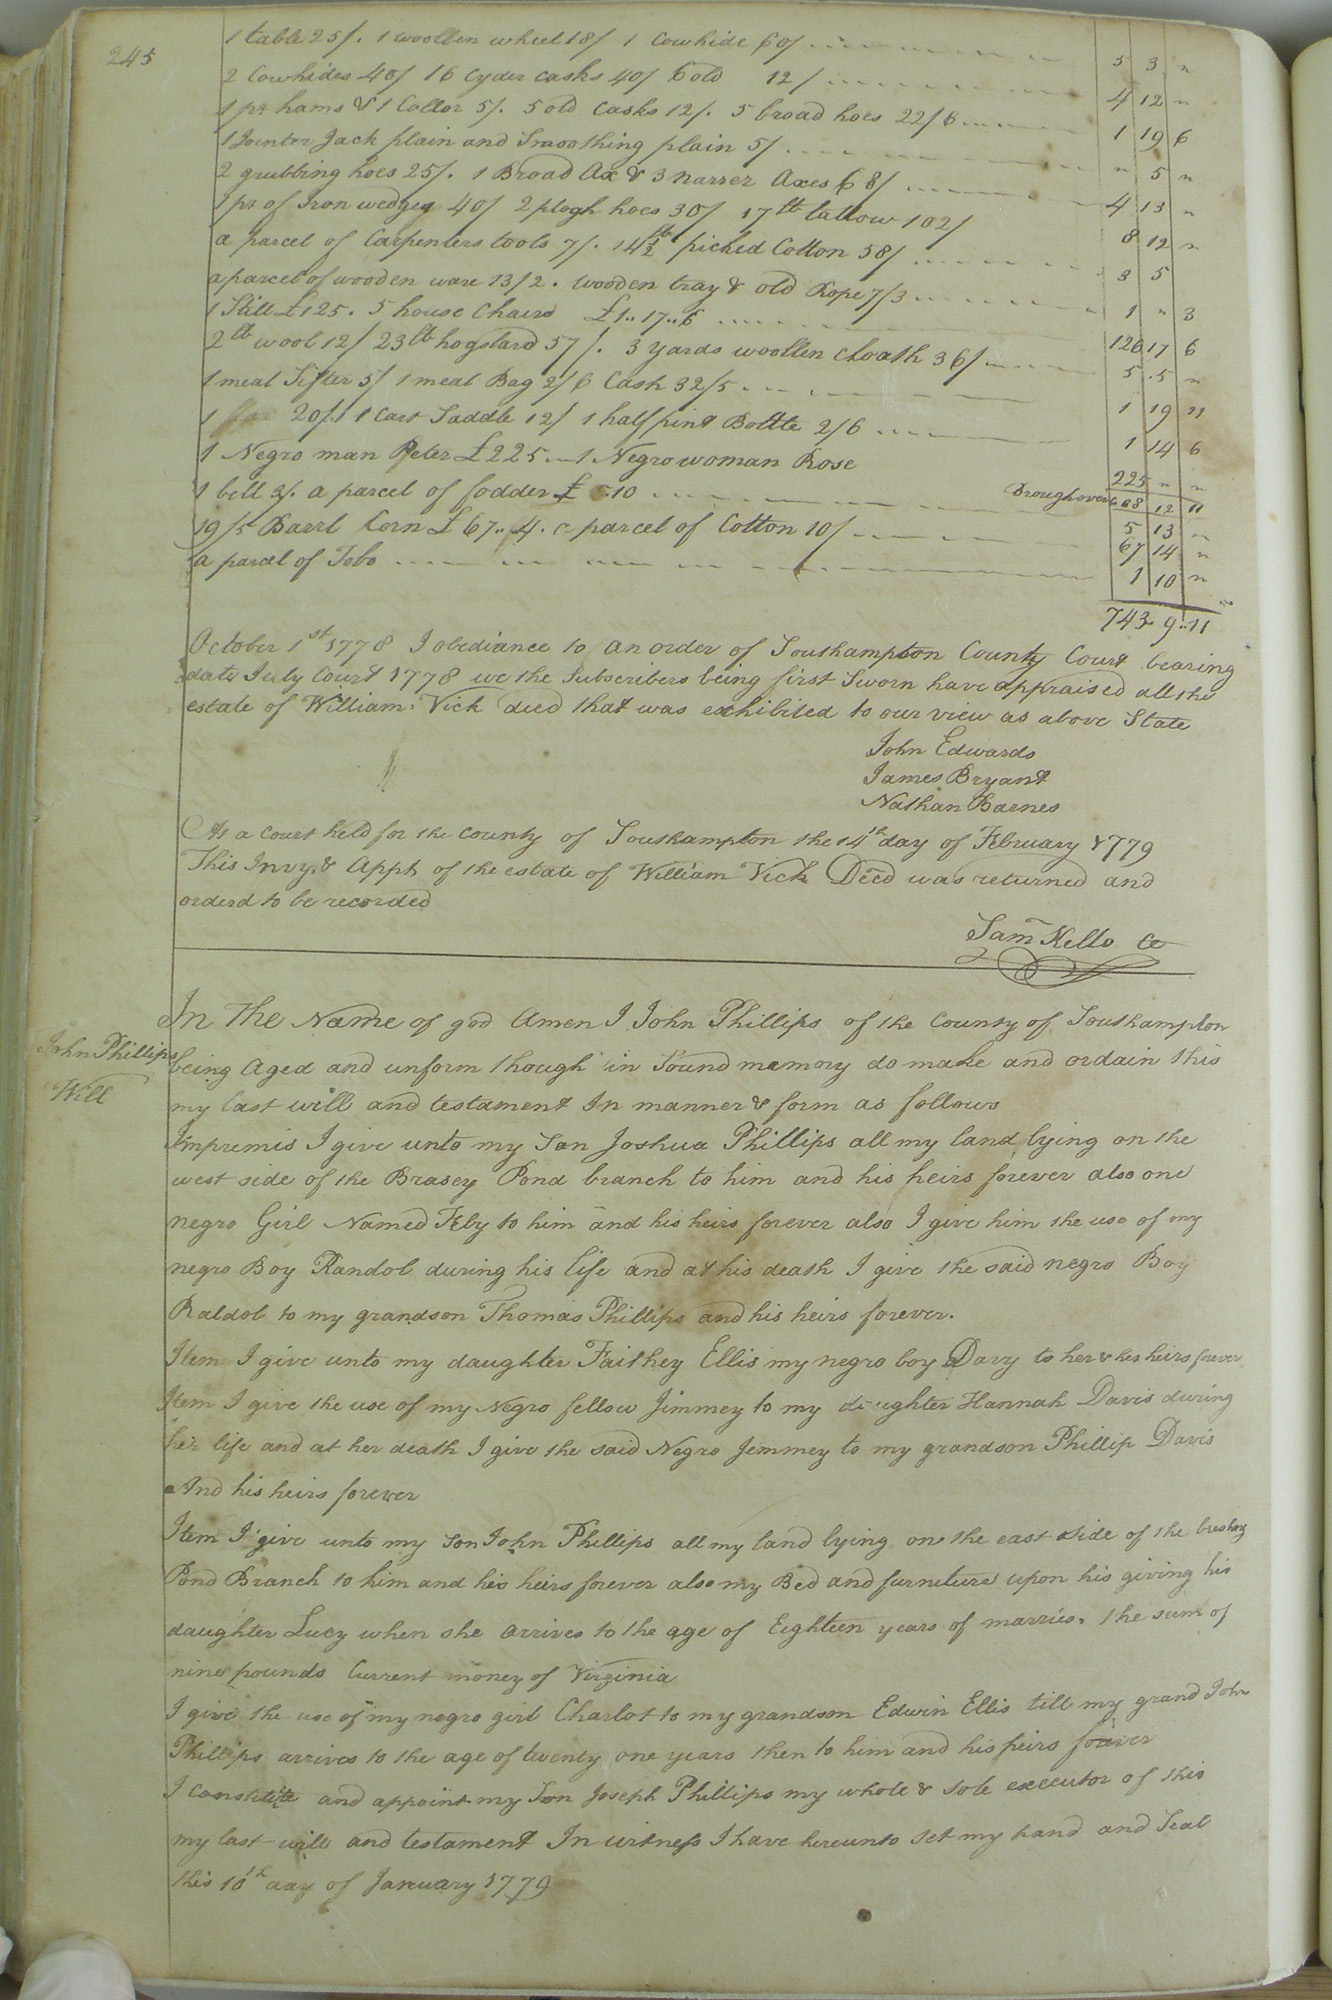 245
1 table 25/. 1 woollen wheel 18/ 1 Cowhide 60/ 5 3 "
2 Cowhides 40/ 16 Cyder casks 40/ 6 old 12/ 4 12 "
1 pr hams & 1 Collor 5/. 5 old Casks 12/. 5 broad hoes 22/6 1 19 6
1 Jointer Jack plain and Smoothing plain 5/ " 5 "
2 grubbing hoes 25/. 1 Broad Ax & 3 narrer Axes 68/ 4 13 "
1 pr of Iron wedges 40/ 2 plogh hoes 30/ 17 lb tallow 102/ 8 12 "
a parcel of Carpenters tools 7/. 14½ lb picked Cotton 58/ 3 5
a parcel of wooden ware 13/2. wooden tray & old Rope 7/3 1 " 3
1 Still £125. 5 house Chairs £1..17..6 126 17 6
2 lb wool 12/ 23 lb hogslard 57/. 3 yards woollen Cloath 36/ 5 .5 "
1 meal Sifter 5/ 1 meal Bag 2/6 Cash 32/5 1 19 11
1 20/. 1 Cart Saddle 12/ 1 half pint Bottle 2/6 1 14 6
1 Negro man Peter £225. 1 Negro woman Rose 225 " "
1 bell 3/. a parcel of fodder £ 5.10 Broughover 668 12 11
19/5 Barrl Corn £67..4. a parcel of Cotton 10/ 5 13 "
67 14 "
a parcel of Tobo 1 10 "
743 9..11
October 1st 1778 I obediance to an order of Southampton County Court bearing
date July Court 1778 we the Subscribers being first Sworn have appraised all the
estate of William Vick decd that was exhibited to our view as above State
John Edwards
James Bryant
Nathan Barnes
At a Court held for the County of Southampton the 14th day of February 1779
This Invy. & Appt. of the estate of William Vick Decd was returned and
orderd to be recorded
Sam Kello Cc
John Phillips
Will
In The Name of god Amen I John Phillips of the County of Southampton
being Aged and unform though in Sound memory do make and ordain this
my last will and testament In manner & form as follows
Impremis I give unto my Son Joshua Phillips all my land lying on the
west side of the Brasey Pond branch to him and his heirs forever also one
negro Girl Named Feby to him and his heirs forever also I give him the use of my
negro Boy Randol during his life and at his death I give the said negro Boy
Raldol to my grandson Thomas Phillips and his heirs forever.
Item I give unto my daughter Faithey Ellis my negro boy Davy to her & her heirs forever
Item I give the use of my Negro fellow Jimmey to my daughter Hannah Davis during
her life and at her death I give the said Negro Jemmey to my grandson Phillip Davis
And his heirs forever
Item I give unto my Son John Phillips all my land lying on the east side of the
Pond Branch to him and his heirs forever also my Bed and furniture upon his giving his
daughter Lucy when she arrives to the age of Eighteen years of marries, the sum of
nine pounds Current money of Virginia
I give the use of my negro girl Charlot to my grandson Edwin Ellis till my grand John
Phillips arrives to the age of twenty one years then to him and his heirs forever
I Constitite and appoint my Son Joseph Phillips my whole & sole executor of this
my last will and testament In witness I have hereunto set my hand and Seal
this 10th day of January 1779